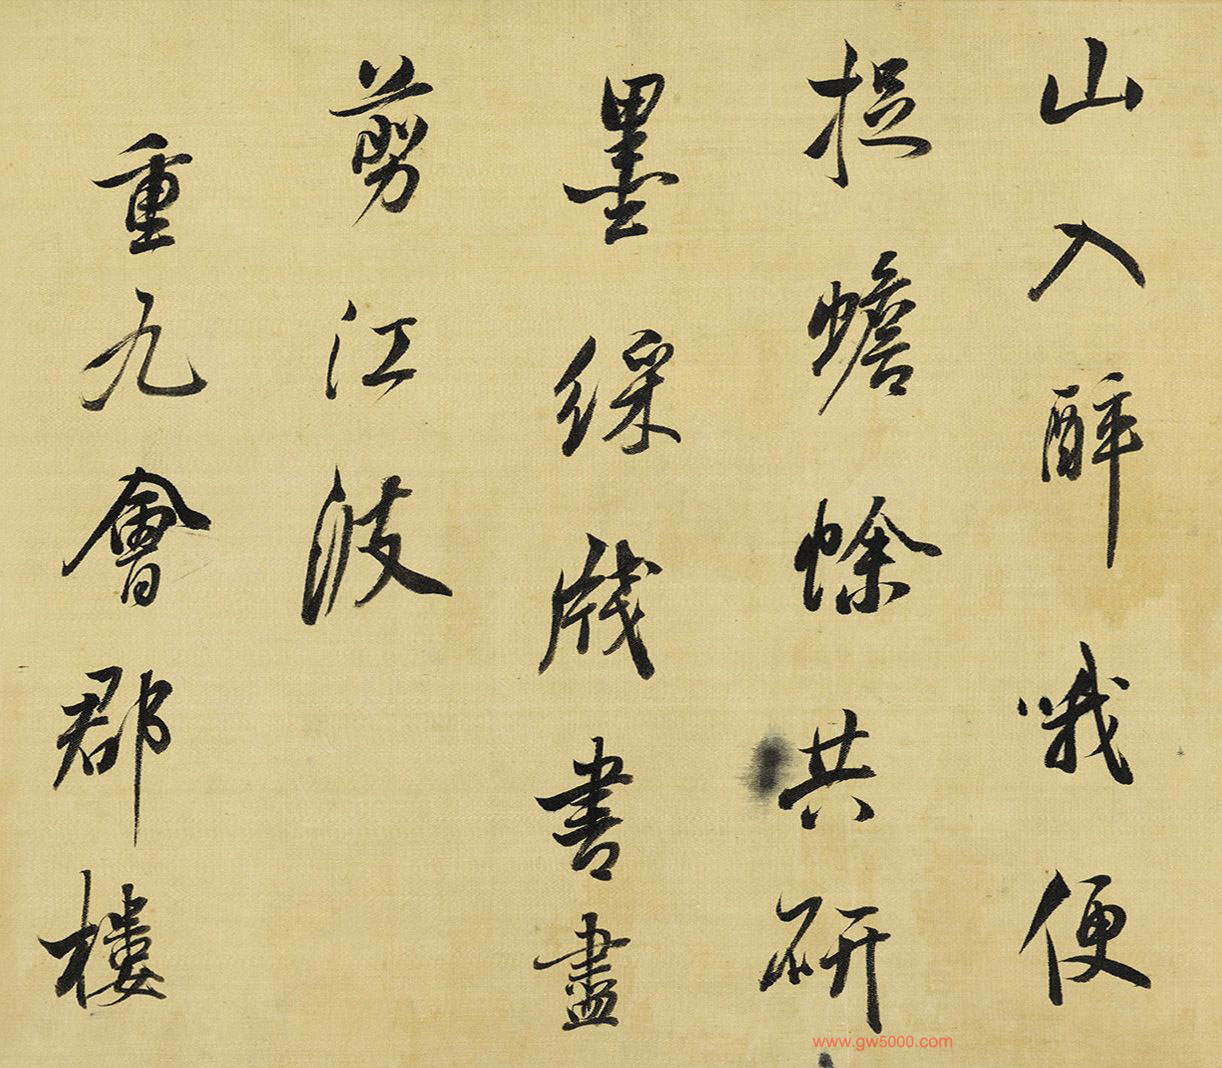 山入醉哦便
捉蟾蜍共研
墨綵牋書盡
剪江波
重九會郡樓
www.gw5000.com